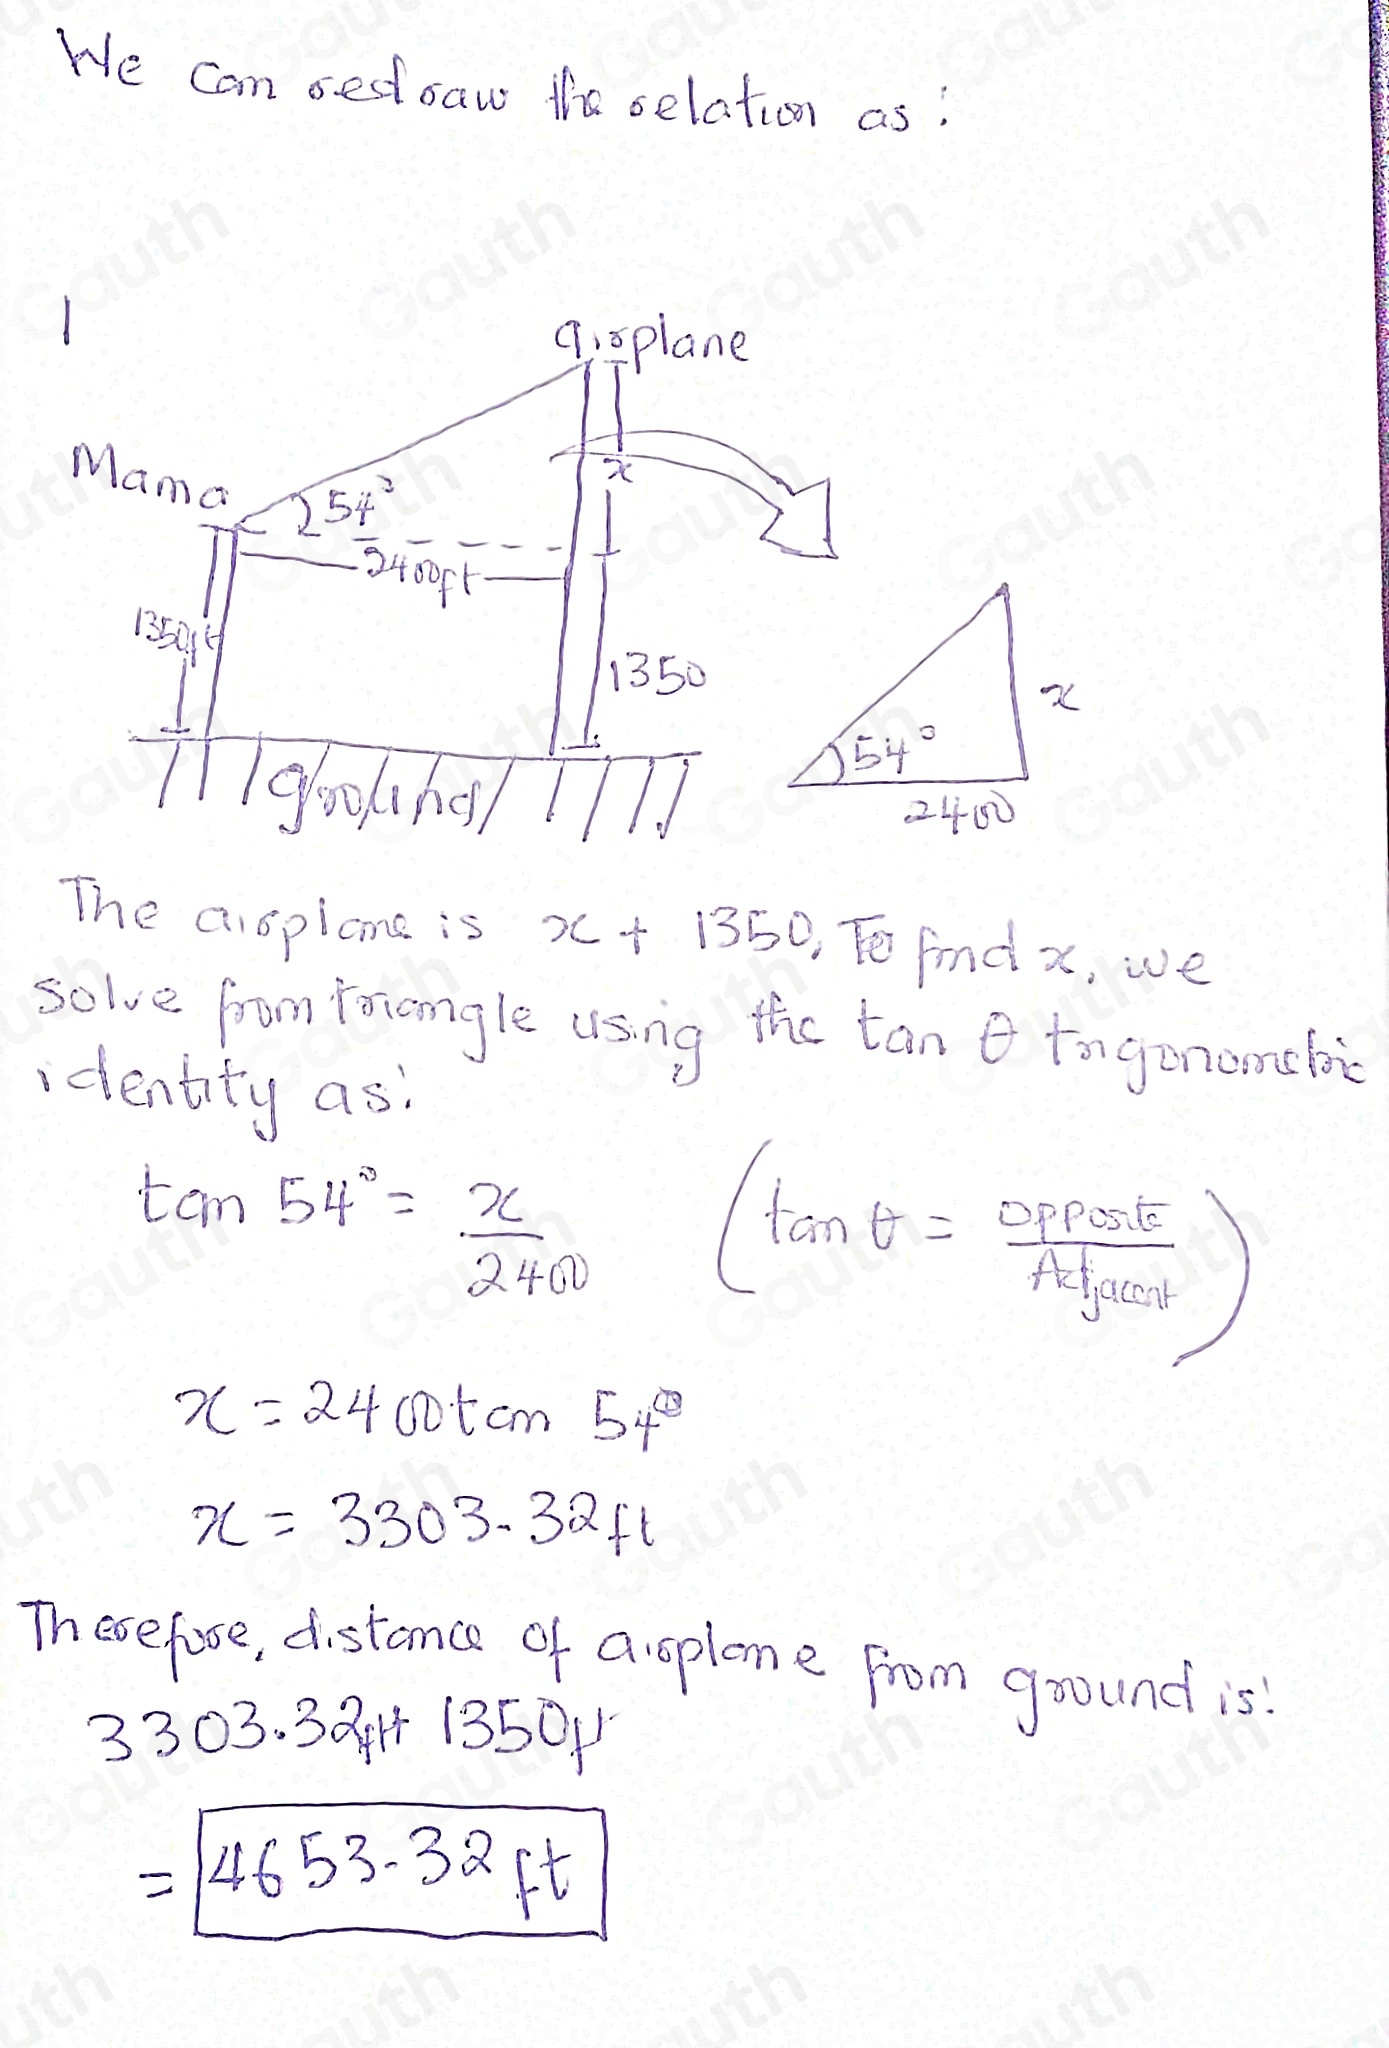 We can redraw the relation as:
1
airplane
Mama
54°
x
2400ft
1350ft
1350
ground
x
54°
2400
The airplane is x + 1350, To find x, we
solve from triangle using the tan θ trigonometric
identity as:
tan 54° = x/2400 (tan θ = opposite/Adjacent)
x = 2400 tan 54°
x = 3303.32 ft
Therefore, distance of airplane from ground is:
3303.32ft + 1350ft
= 4653.32 ft
Gauth